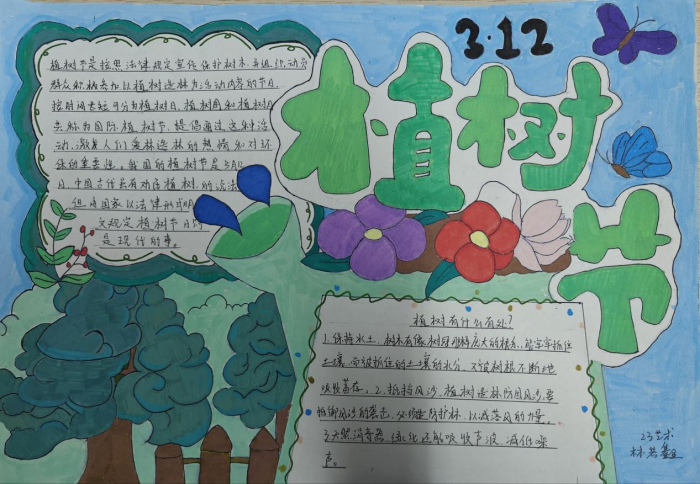 3·12
植树节
植树节是按照法律规定宣传保护树木,并组织动员
群众积极参加以植树造林为活动内容的节日.
按时间长短可分为植树日、植树周和植树月
共称为国际植树节.提倡通过这种活
动,激发人们爱林造林的热情和对环
保的重要性,我国的植树节是3月12
日,中国古代是有劝民植树的说法
但,由国家以法律形式明
文规定植树节日的
是现代的事。
植树有什么有处?
1.保持水土,树木有像树冠那样庞大的根系,能牢牢抓住
土壤.而被抓住的土壤的水分,又被树根不断地
吸收蓄存,2.抵挡风沙,植树造林防固风沙,要
抵御风沙的袭击,必须造防护林,以减落风的力量.
3.天然消音器,绿化还能吸收声波,减低噪
声。
23艺术
林若